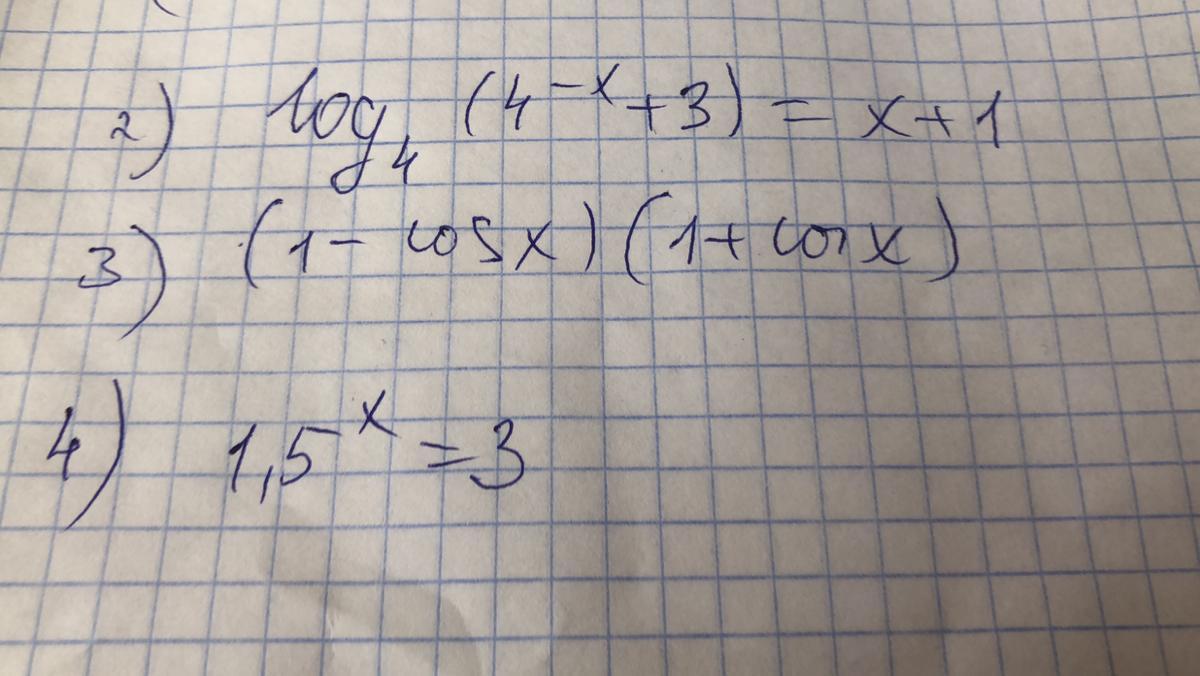 2) log₄ (4⁻ˣ + 3) = x + 1
3) (1 - cos x) (1 + cos x)
4) 1,5ˣ = 3